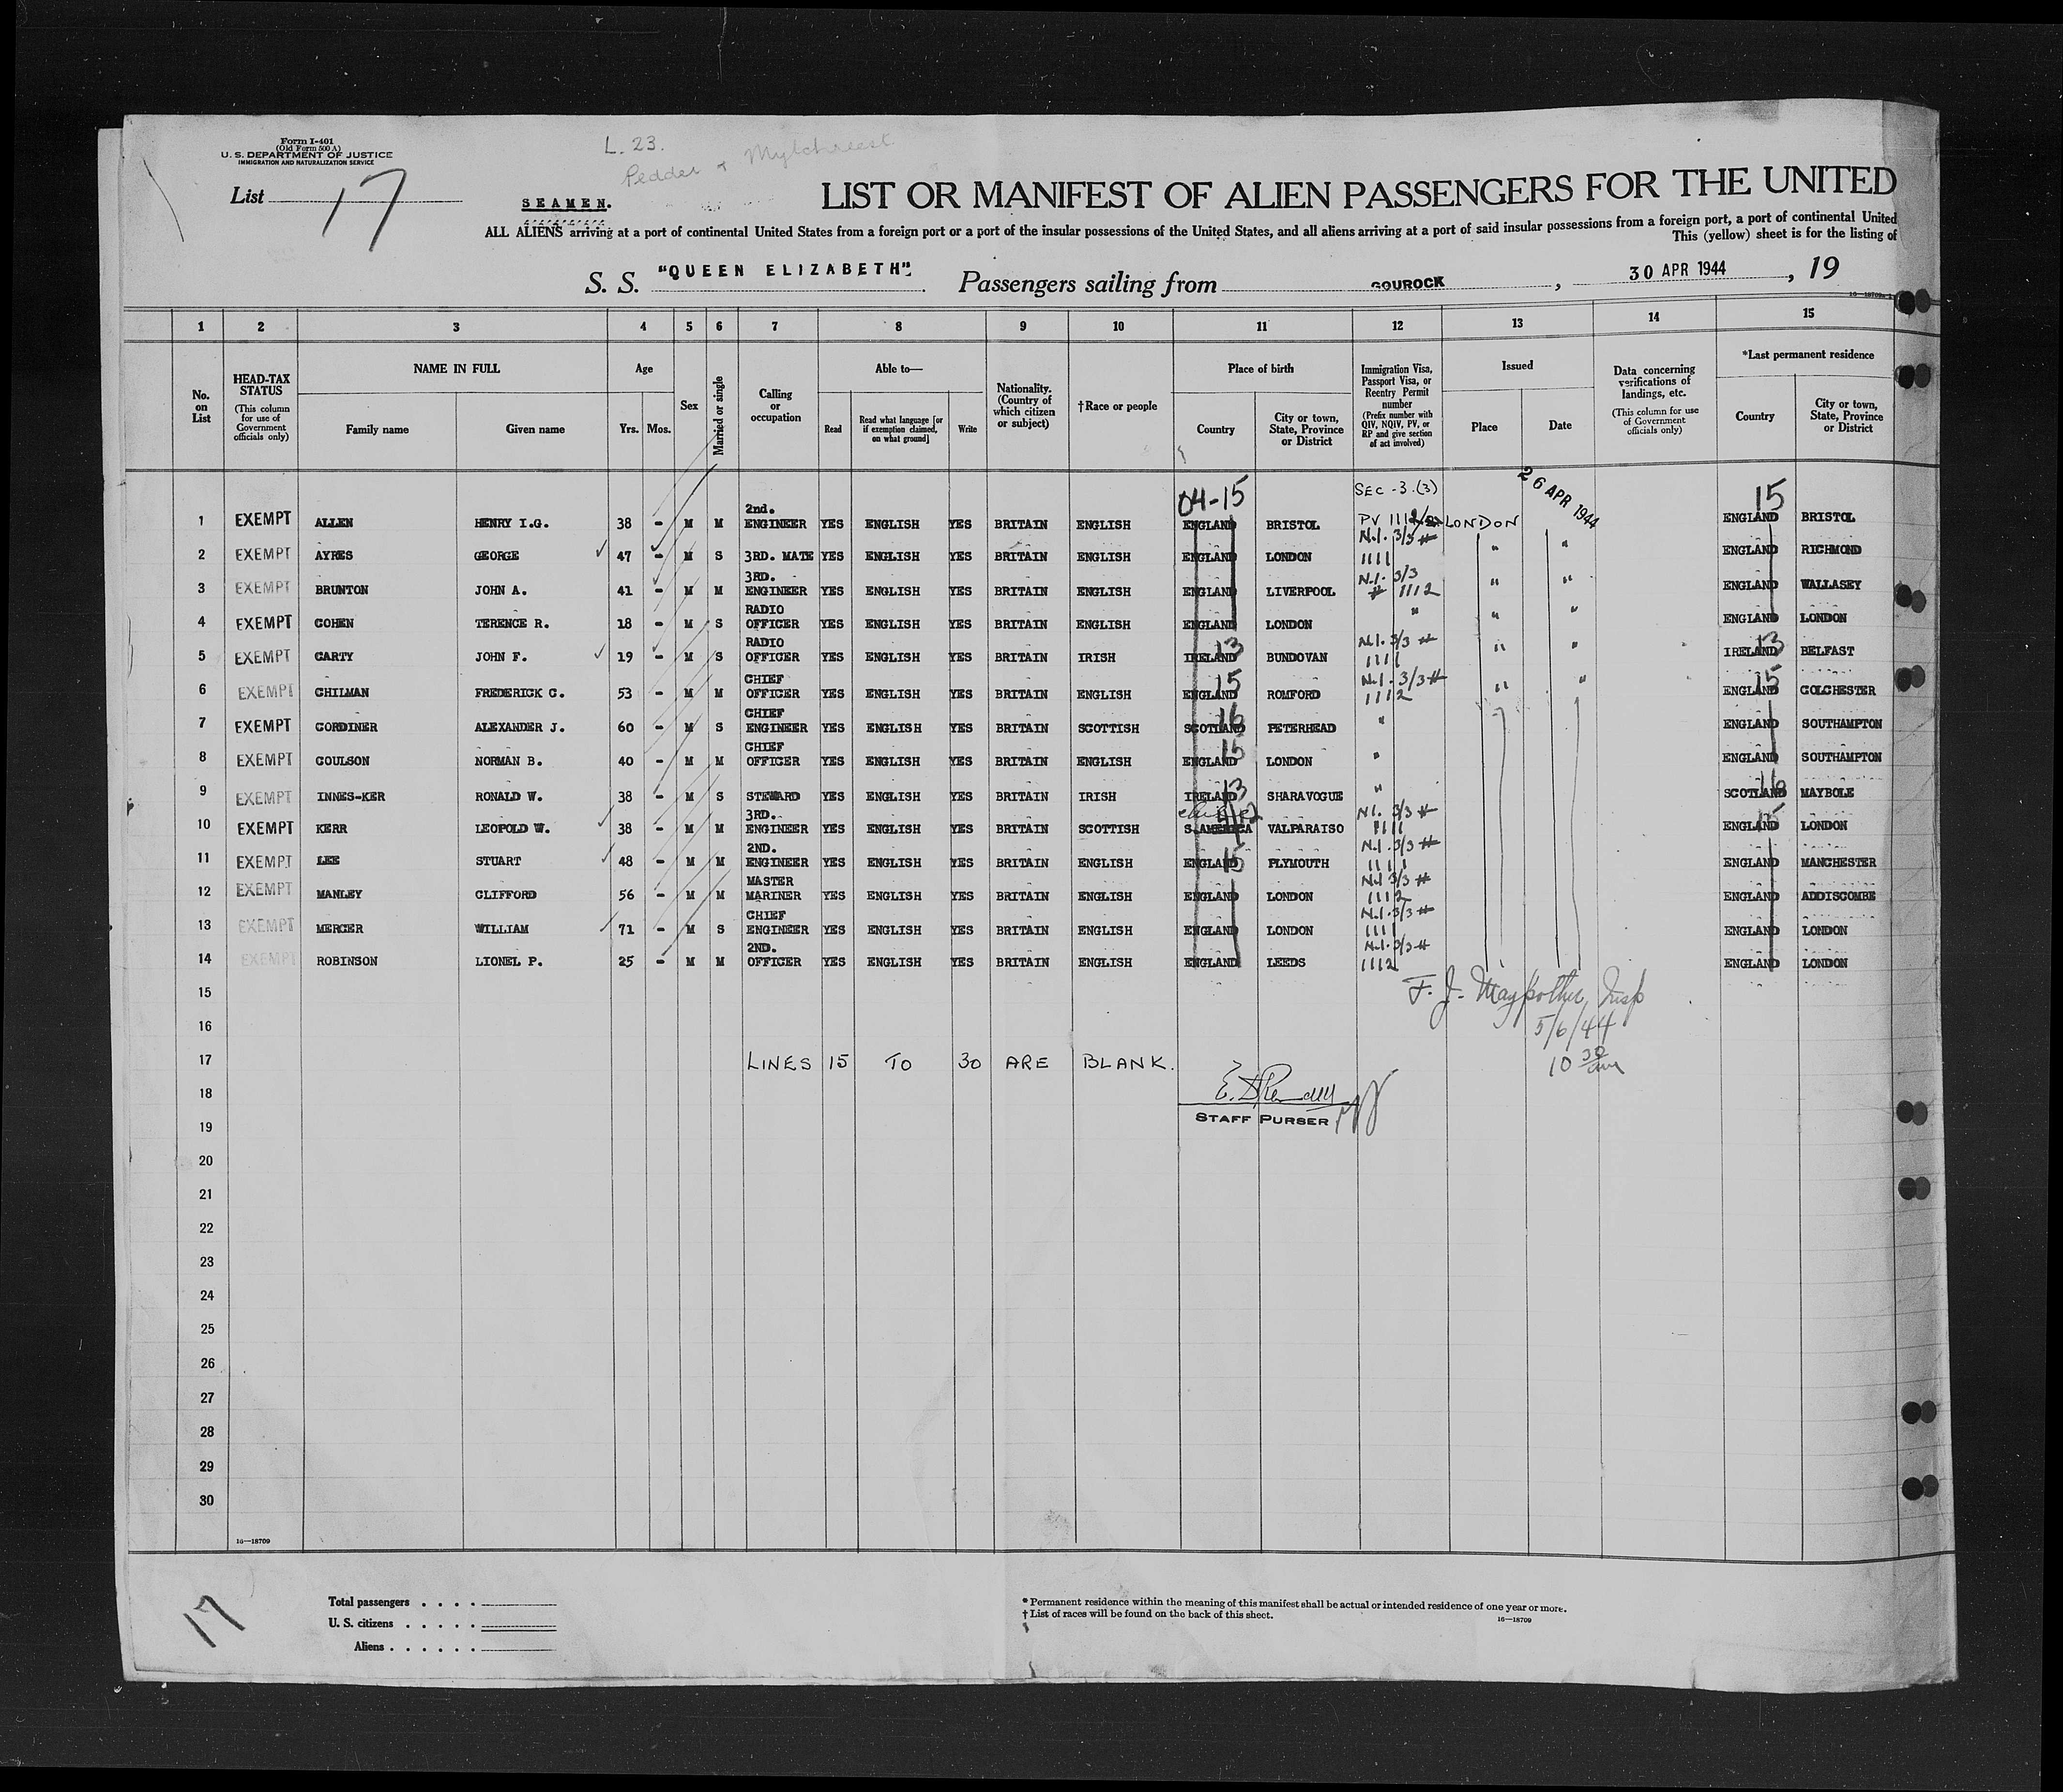 Form I-401
(Old Form 500 A)
U. S. DEPARTMENT OF JUSTICE
IMMIGRATION AND NATURALIZATION SERVICE
L. 23.
Pedder & Mylchreest
List 17
SEAMEN.
LIST OR MANIFEST OF ALIEN PASSENGERS FOR THE UNITED
ALL ALIENS arriving at a port of continental United States from a foreign port or a port of the insular possessions of the United States, and all aliens arriving at a port of said insular possessions from a foreign port, a port of continental United
This (yellow) sheet is for the listing of
S. S. "QUEEN ELIZABETH" Passengers sailing from GOUROCK, 30 APR 1944, 19
1 2 3 4 5 6 7 8 9 10 11 12 13 14 15
No. on List
HEAD-TAX STATUS
(This column for use of Government officials only)
NAME IN FULL
Family name
Given name
Age
Yrs. Mos.
Sex
Married or single
Calling or occupation
Able to—
Read
Read what language [or if exemption claimed, on what ground]
Write
Nationality. (Country of which citizen or subject)
†Race or people
Place of birth
Country
City or town, State, Province or District
Immigration Visa, Passport Visa, or Reentry Permit number
(Prefix number with QIV, NQIV, PV, or RP and give section of act involved)
Issued
Place
Date
Data concerning verifications of landings, etc.
(This column for use of Government officials only)
*Last permanent residence
Country
City or town, State, Province or District
04-15 SEC-3.(3) 26 APR 1944 15
1 EXEMPT ALLEN HENRY I.G. 38 - M M 2nd. ENGINEER YES ENGLISH YES BRITAIN ENGLISH ENGLAND BRISTOL PV 1112 LONDON ENGLAND BRISTOL
2 EXEMPT AYRES GEORGE 47 - M S 3RD. MATE YES ENGLISH YES BRITAIN ENGLISH ENGLAND LONDON N.I. 3/3 # 1111 " " ENGLAND RICHMOND
3 EXEMPT BRUNTON JOHN A. 41 - M M 3RD. ENGINEER YES ENGLISH YES BRITAIN ENGLISH ENGLAND LIVERPOOL N.I. 3/3 # 1112 " " ENGLAND WALLASEY
4 EXEMPT COHEN TERENCE R. 18 - M S RADIO OFFICER YES ENGLISH YES BRITAIN ENGLISH ENGLAND LONDON " " " ENGLAND LONDON
5 EXEMPT CARTY JOHN F. 19 - M S RADIO OFFICER YES ENGLISH YES BRITAIN IRISH IRELAND 13 BUNDOVAN N.I. 3/3 # 1111 " " IRELAND 13 BELFAST
6 EXEMPT CHILMAN FREDERICK C. 53 - M M CHIEF OFFICER YES ENGLISH YES BRITAIN ENGLISH ENGLAND 15 ROMFORD N.I. 3/3 # 1112 " " ENGLAND 15 COLCHESTER
7 EXEMPT CORDINER ALEXANDER J. 60 - M S CHIEF ENGINEER YES ENGLISH YES BRITAIN SCOTTISH SCOTLAND 16 PETERHEAD " ENGLAND SOUTHAMPTON
8 EXEMPT COULSON NORMAN B. 40 - M M CHIEF OFFICER YES ENGLISH YES BRITAIN ENGLISH ENGLAND 15 LONDON " ENGLAND SOUTHAMPTON
9 EXEMPT INNES-KER RONALD W. 38 - M S STEWARD YES ENGLISH YES BRITAIN IRISH IRELAND 13 SHARAVOGUE " SCOTLAND 16 MAYBOLE
10 EXEMPT KERR LEOPOLD W. 38 - M M 3RD. ENGINEER YES ENGLISH YES BRITAIN SCOTTISH S.AMERICA VALPARAISO N.I. 3/3 # 1111 ENGLAND 15 LONDON
11 EXEMPT LEE STUART 48 - M M 2ND. ENGINEER YES ENGLISH YES BRITAIN ENGLISH ENGLAND 15 PLYMOUTH N.I. 3/3 # 1111 ENGLAND MANCHESTER
12 EXEMPT MANLEY CLIFFORD 56 - M M MASTER MARINER YES ENGLISH YES BRITAIN ENGLISH ENGLAND LONDON N.I 3/3 # 1112 ENGLAND ADDISCOMBE
13 EXEMPT MERCER WILLIAM 71 - M S CHIEF ENGINEER YES ENGLISH YES BRITAIN ENGLISH ENGLAND LONDON N.I. 3/3 # 1111 ENGLAND LONDON
14 EXEMPT ROBINSON LIONEL P. 25 - M M 2ND. OFFICER YES ENGLISH YES BRITAIN ENGLISH ENGLAND LEEDS N.I. 3/3 # 1112 ENGLAND LONDON
15
F. J. Maypother, Insp
16
5/6/44
17 LINES 15 TO 30 ARE BLANK.
10 30 am
18
STAFF PURSER
19
20
21
22
23
24
25
26
27
28
29
30
16—18709
17
Total passengers
U. S. citizens
Aliens
* Permanent residence within the meaning of this manifest shall be actual or intended residence of one year or more.
† List of races will be found on the back of this sheet.
16—18709